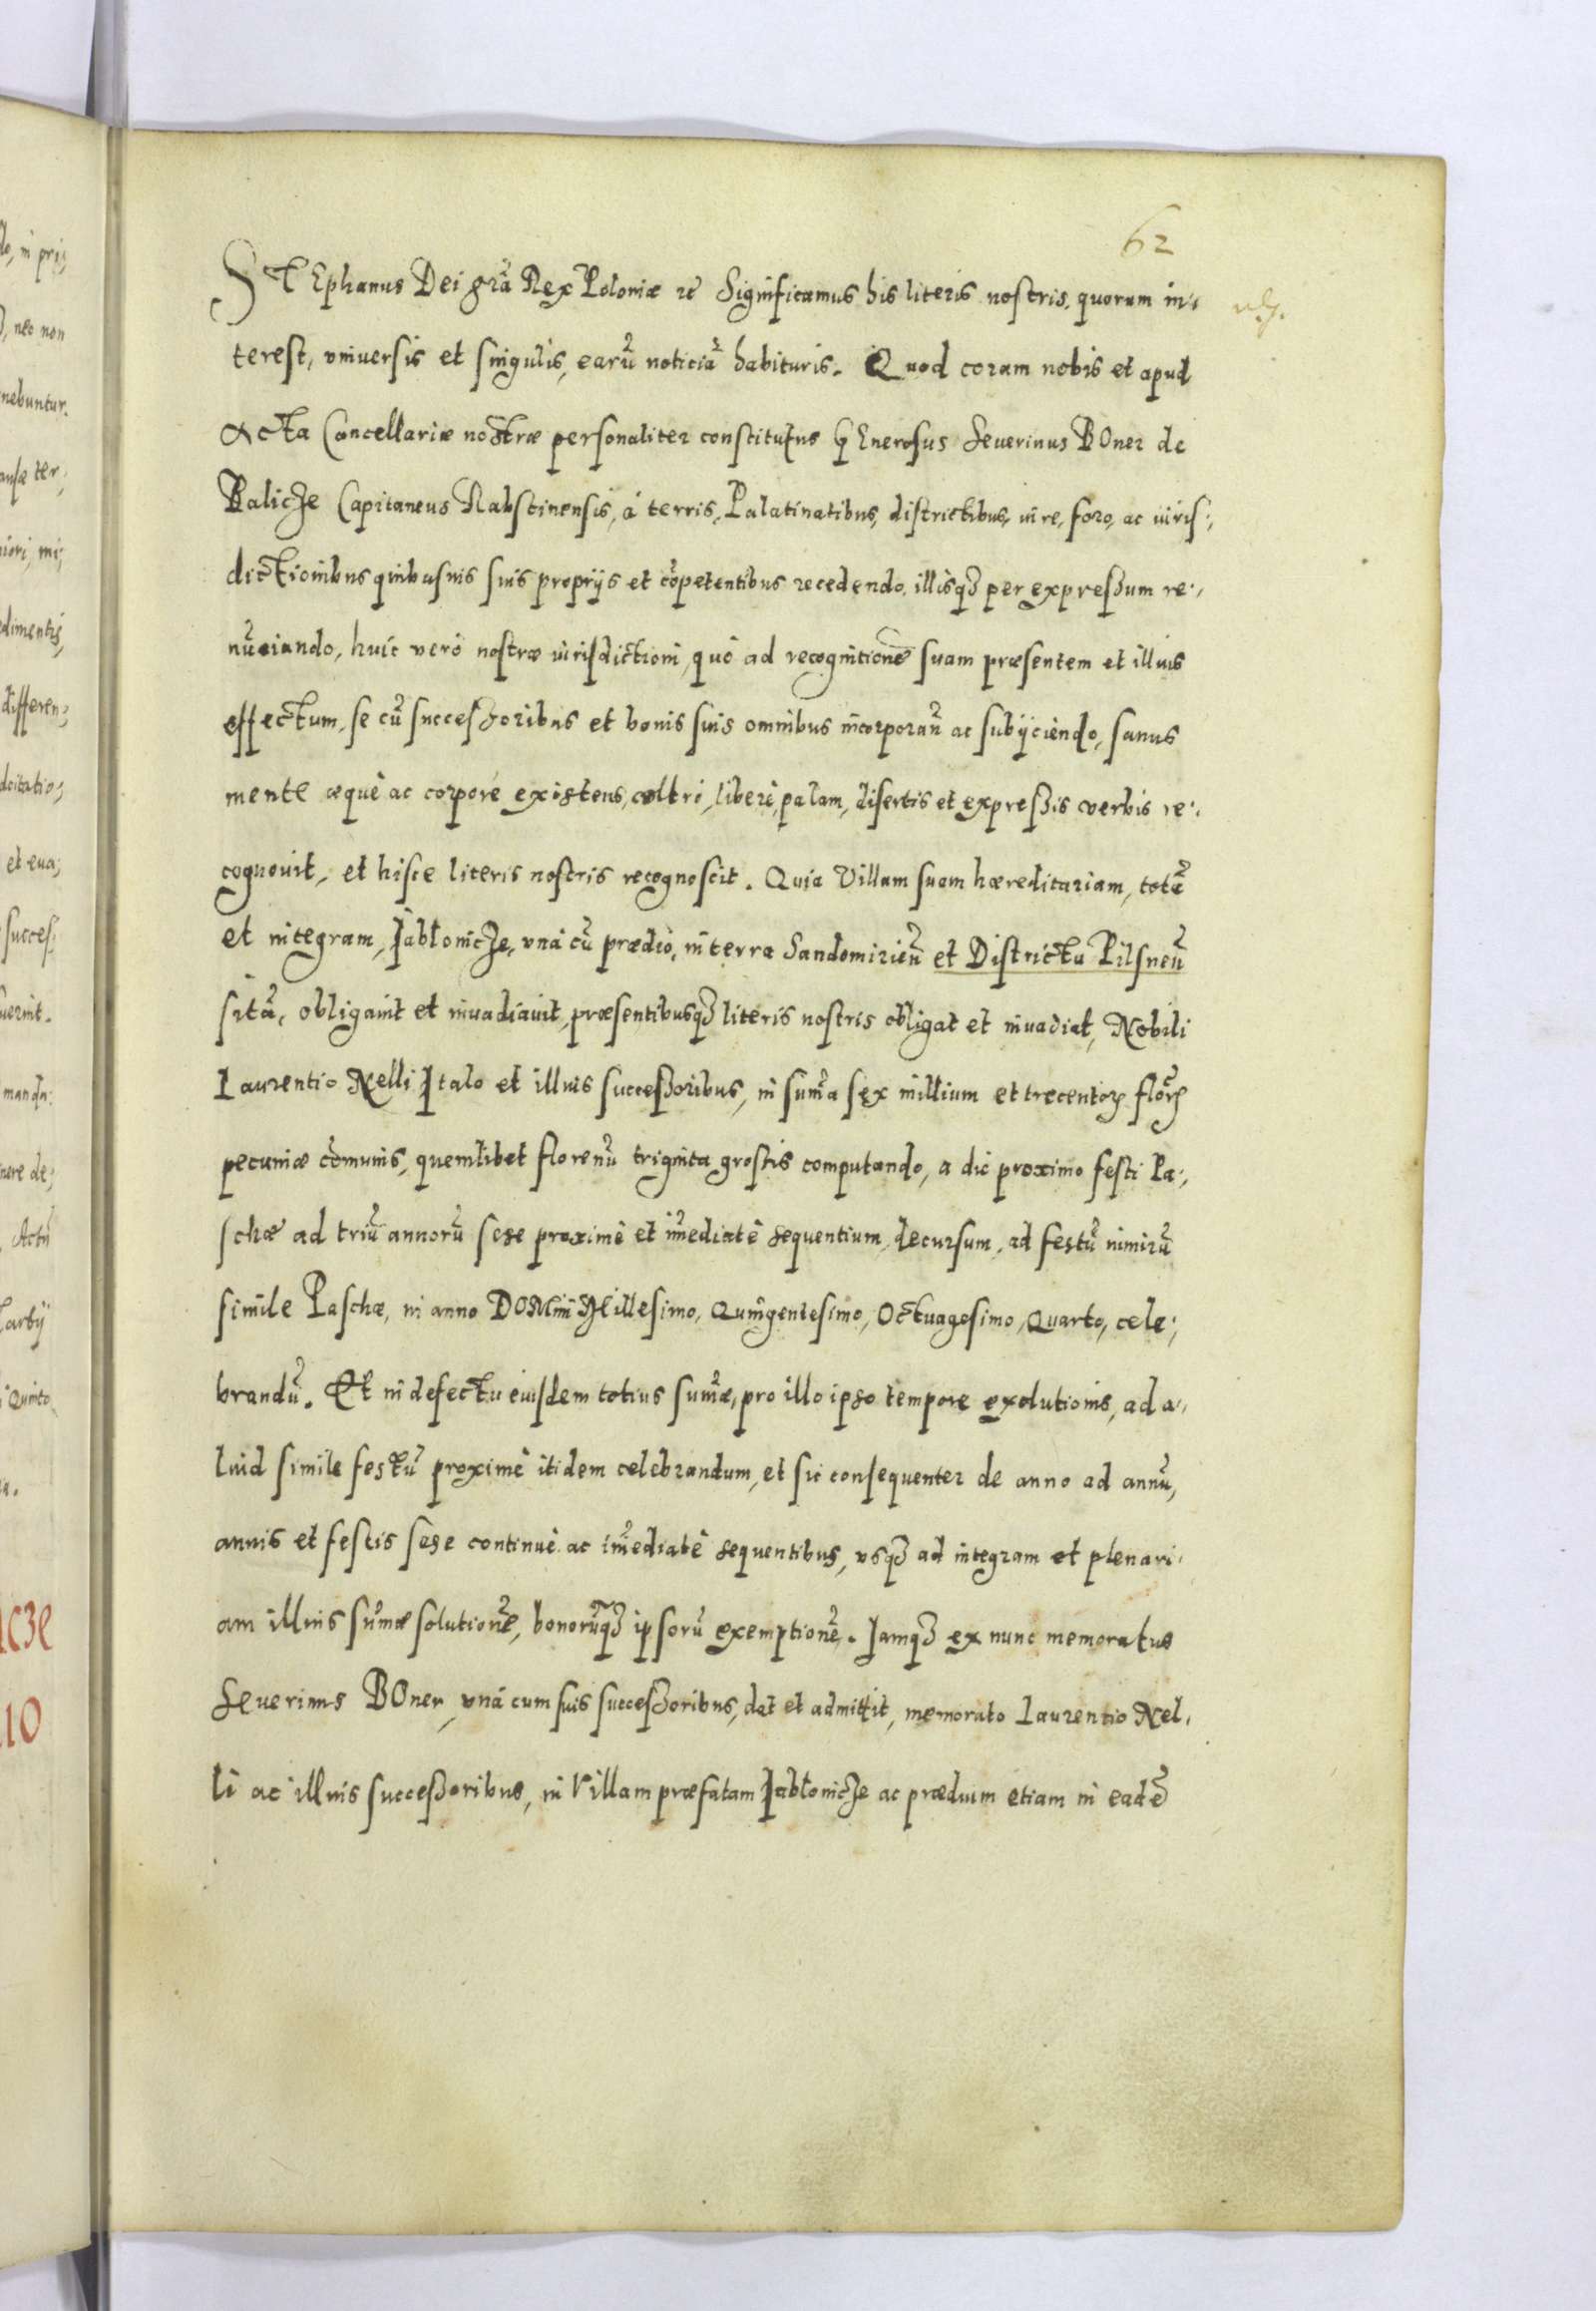 62
STEphanus Dei gr̃a Rex Poloniæ ꝛc Significamus his literis nostris, quorum in:
terest, vniuersis et singulis, earũ noticiã habituris. Quod coram nobis et apud
Acta Cancellariæ nostræ personaliter constitutus GEnerosus Seuerinus BOner de
Balicze Capitaneus Rabstinensis, á terris, Palatinatibus, districtibus, iure, foro, ac iuris:,
dictionibus quibusuis suis proprijs et cõpetentibus recedendo, illisqȝ per expressum re:,
nũciando, huic veró nostræ iurisdictioni, quó ad recognitionẽ suam præsentem et illius
effectum, se cũ successoribus et bonis suis omnibus incorporañ ac subijciendo, sanus
mente æquè ac corpore existens, vltró, liberè, palam, disertis et expressis verbis re:,
cognouit, et hisce literis nostris recognoscit. Quia Villam suam hæreditariam, totã
et integram, Jabłonicze, vná cũ prædio, in terra Sandomirieñ et Districtu Pilsneñ
sitã, obligauit et inuadiauit, præsentibusqȝ literis nostris obligat et inuadiat, Nobili
Laurentio Nelli Italo et illius successoribus, in sum̃a sex millium et trecentoꝝ floꝝ
pecuniæ cõmunis, quemlibet florenũ triginta grossis computando, a die proximo festi Pa:,
schæ ad triũ annorũ sese proximè et im̃ediatè sequentium, decursum, ad festũ nimirũ
simile Paschæ, in anno DOMini Millesimo, Quingentesimo, Octuagesimo, Quarto, cele:,
brandũ. Et in defectu eiusdem totius sum̃æ, pro illo ipso tempore exolutionis, ad a:,
liud simile festũ proximè itidem celebrandum, et sic consequenter de anno ad annũ,
annis et festis sese continuè ac im̃ediatè sequentibus, vsqȝ ad integram et plenari:
am illius sum̃æ solutionẽ, bonorũqȝ ipsorũ exemptionẽ. Jamqȝ ex nunc memoratus
Seuerinus BOner, vná cum suis successoribus, dat et admittit, memorato Laurentio Nel:
li ac illius successoribus, in Villam præfatam Jabłonicze ac prædium etiam in eadẽ